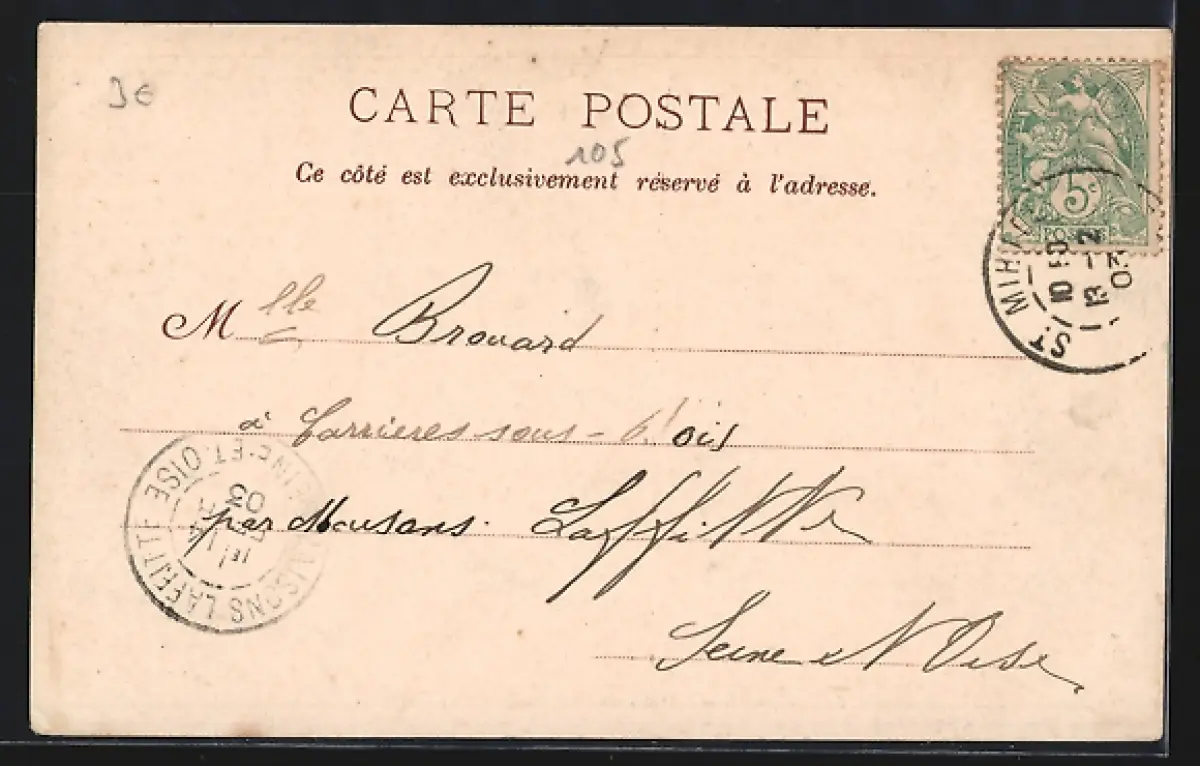 3€
CARTE POSTALE
105
Ce côté est exclusivement réservé à l'adresse.
5c
POSTES
ST. MIHIEL
10 50
13 - 2
03
Mlle Brouard
à Carrieres sous - bois
par Maisons Laffitte
Seine et Oise
MAISONS LAFFITTE
SEINE-ET-OISE
03